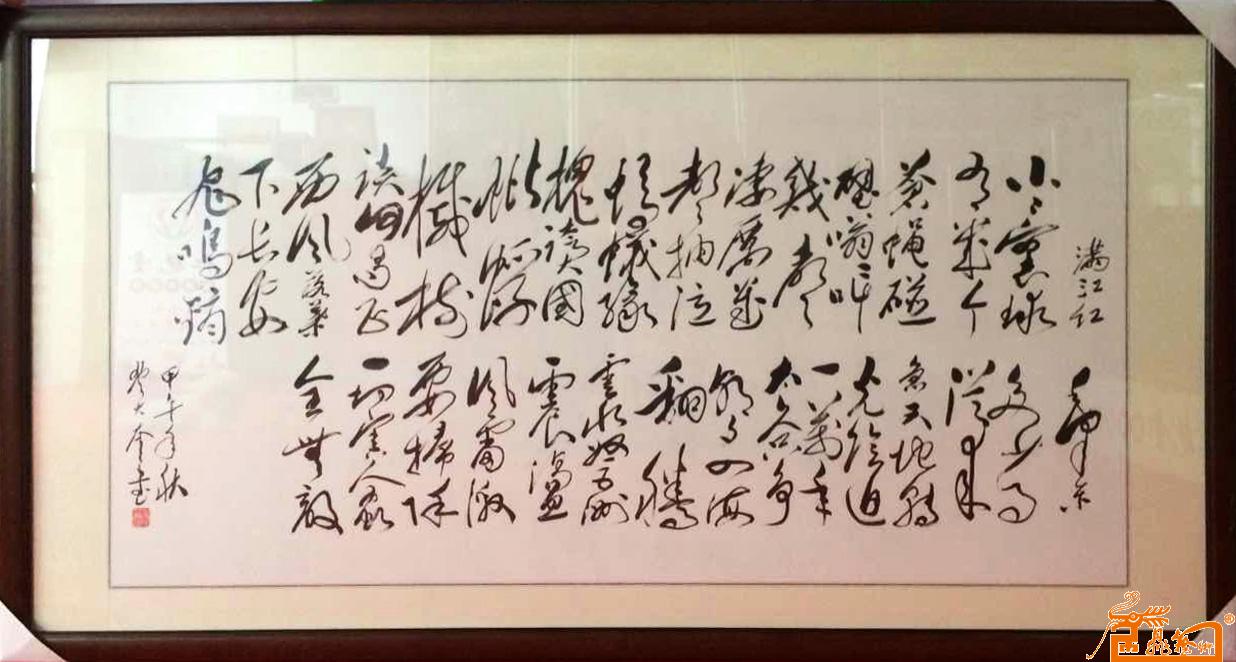 满江红
小小寰球
有幾个
苍蝇碰
壁嗡嗡叫
幾声
凄厲幾
声抽泣
蚂蟻缘
槐誇國
蚍蜉
撼树
谈何易正
西风落葉
下长安
飞鸣镝
多少事
从来
急天地转
光阴迫
一萬年
太久争
朝夕四海
翻腾
雲水怒五洲
震荡
风雷激
要掃除
一切害人虫
全無敌
甲午年秋